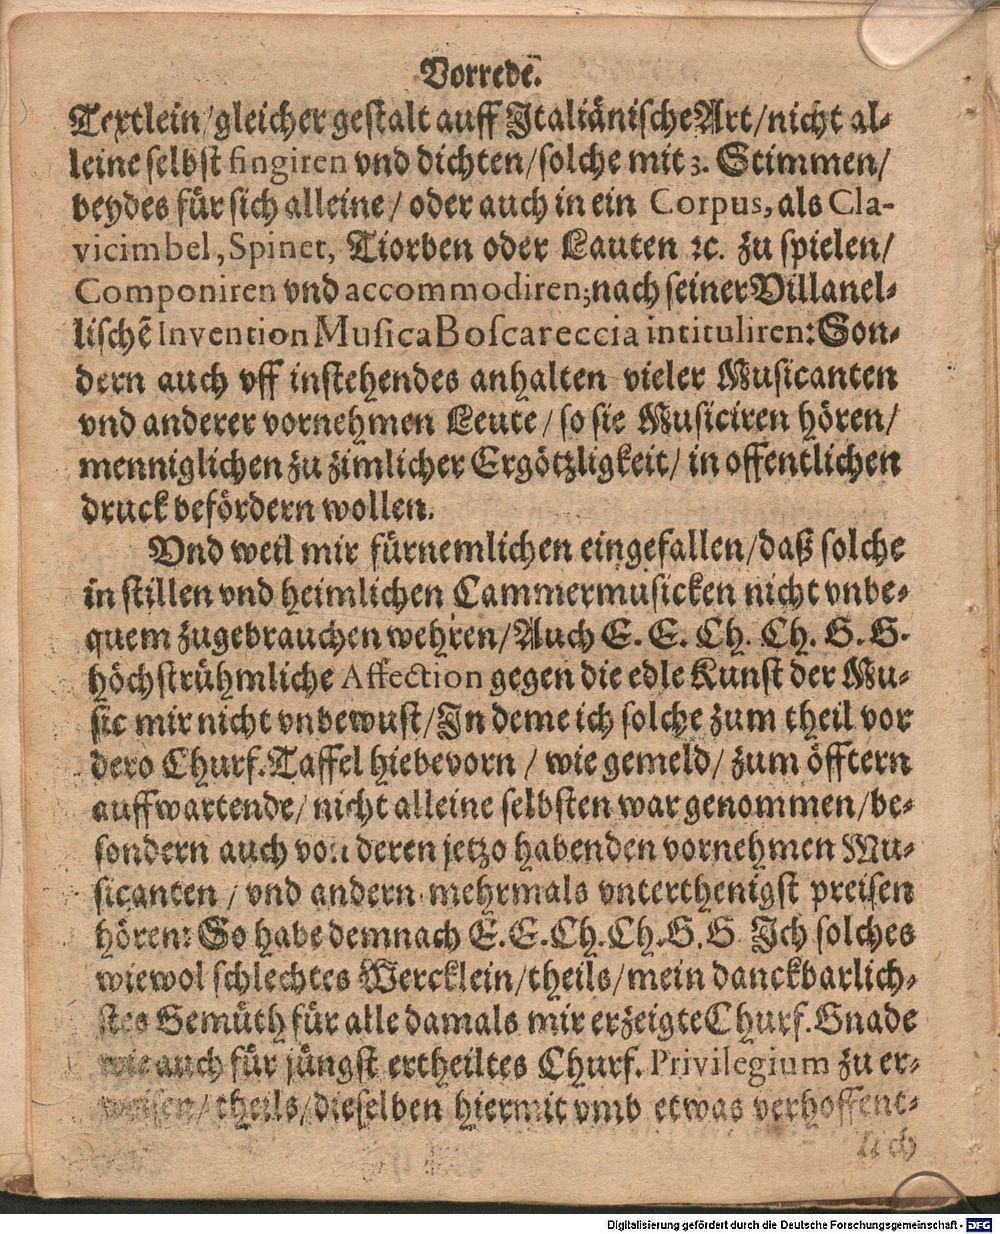 Vorrede.
Textlein/gleicher gestalt auff Italiänische Art/nicht al-
leine selbst fingiren vnd dichten/solche mit 3. Stimmen/
beydes für sich alleine/ oder auch in ein Corpus, als Cla-
vicimbel, Spinet, Tiorben oder Lauten ꝛc. zu spielen/
Componiren vnd accommodiren; nach seiner Villanel-
lischē Invention Musica Boscareccia intituliren: Son-
dern auch vff instehendes anhalten vieler Musicanten
vnd anderer vornehmen Leute/ so sie Musiciren hören/
menniglichen zu zimlicher Ergötzligkeit/ in offentlichen
druck befördern wollen.
Vnd weil mir fürnemlichen eingefallen/daß solche
in stillen vnd heimlichen Cammermusicken nicht vnbe-
quem zugebrauchen wehren/Auch E. E. Ch. Ch. G. G.
höchstrühmliche Affection gegen die edle Kunst der Mu-
sic mir nicht vnbewust/In deme ich solche zum theil vor
dero Churf. Taffel hiebevorn / wie gemeld/ zum öfftern
auffwartende/ nicht alleine selbsten war genommen/be-
sondern auch von deren jetzo habenden vornehmen Mu-
sicanten / vnd andern mehrmals vnterthenigst preisen
hören: So habe demnach E. E. Ch. Ch. G. G Ich solches
wiewol schlechtes Wercklein/theils/mein danckbarlich-
stes Gemüth für alle damals mir erzeigte Churf. Gnade
wie auch für jüngst ertheiltes Churf. Privilegium zu er-
weisen/ theils/dieselben hiermit vmb etwas verhoffent-
lich
Digitalisierung gefördert durch die Deutsche Forschungsgemeinschaft - DFG